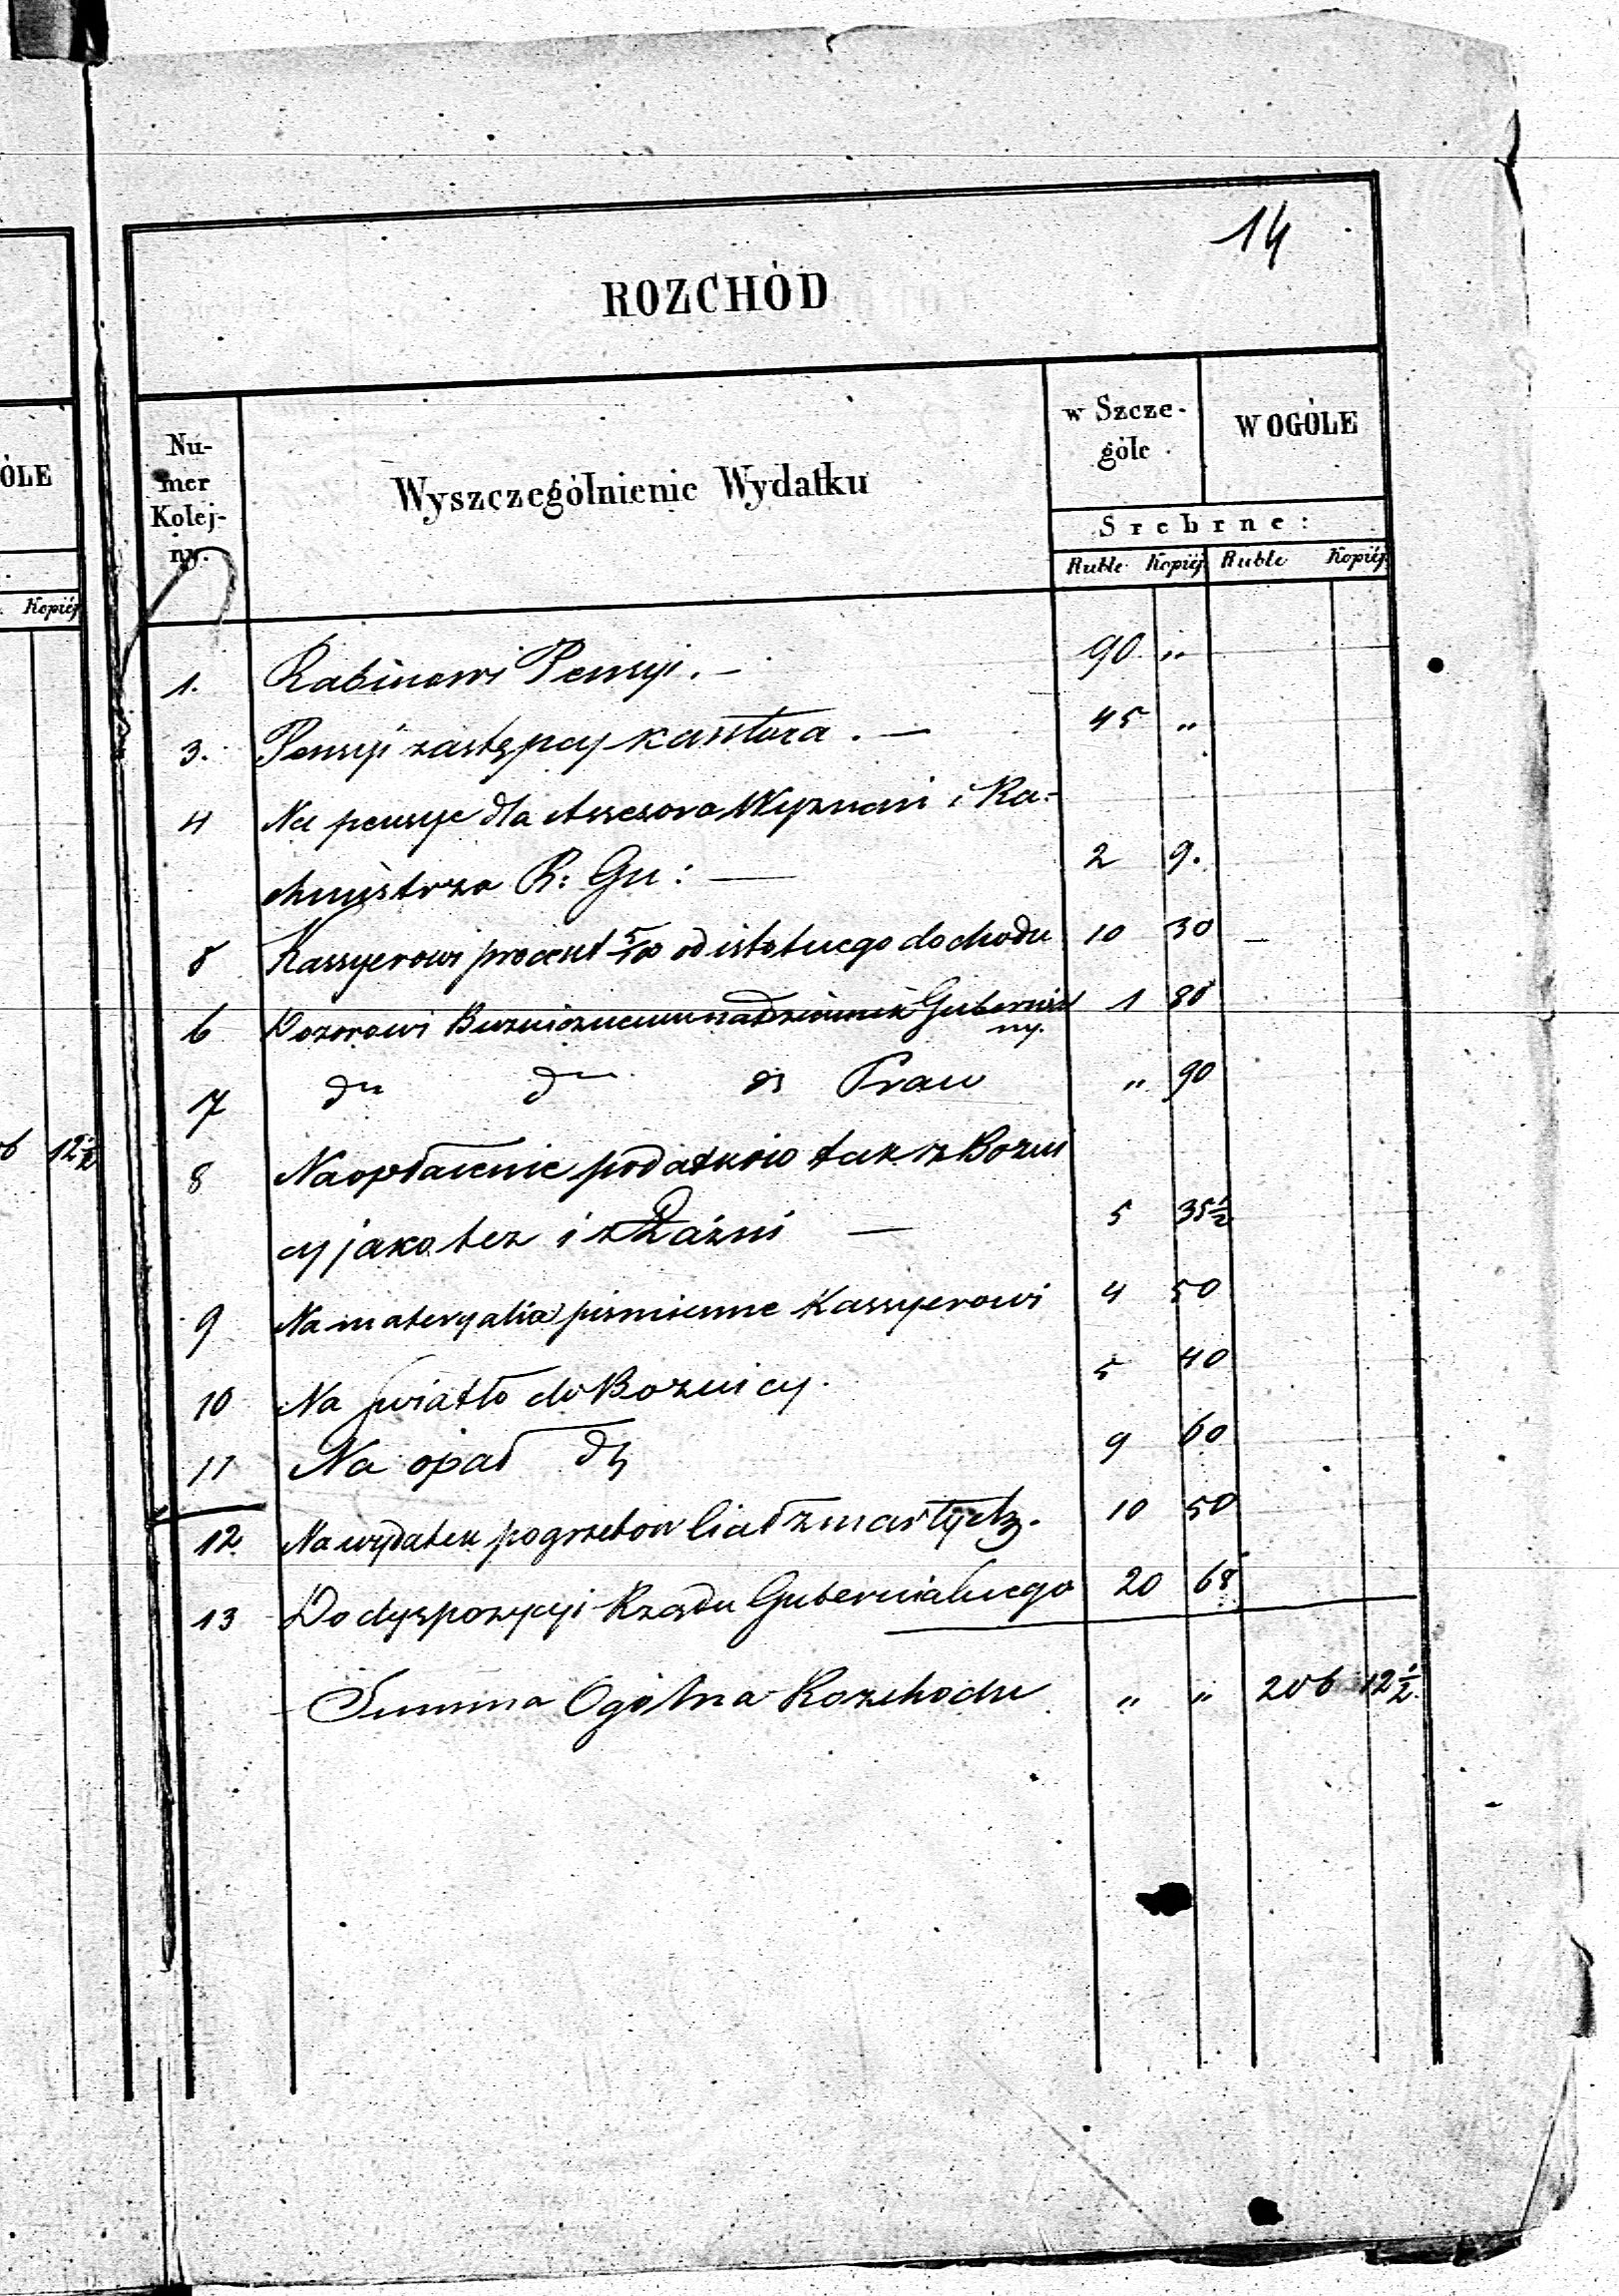 14
ROZCHÓD
ÓLE
Nu-
mer
Kolej-
ny.
Wyszczególnienie Wydatku
w Szcze-
góle
W OGÓLE
Srebrne:
Ruble Kopiéj Ruble Kopiéj
Kopiéj
1. Rabinowi Pensyi. — 90 „
3. Pensyi zastępcy kantora. — 45 „
4 Na pensye dla Assesora Wyznań i Ra-
chmistrza R: Gu: — 2 9.
8 Kassyerowi procent 5/100 od istotnego dochodu 10 30
6 Dozorowi Buznicznemu na dziennik Gubernial 1 80
ny.
7 do do do Praw „ 90
6 12½
8 Na opłacenie podatków tak z Bozni
cy jako tez i z Łaźni — 5 35½
9 Na materyalia piśmienne Kassyerowi 4 50
10 Na światło do Boznicy. 5 40
11 Na opał do 9 60
12. Na wydatek pogrzebow Ciał zmarłych. 10 50
13 Do dyspozycyi Rządu Gubernialnego 20 68
Summa Ogólna Rozchodu „ „ 206 12½